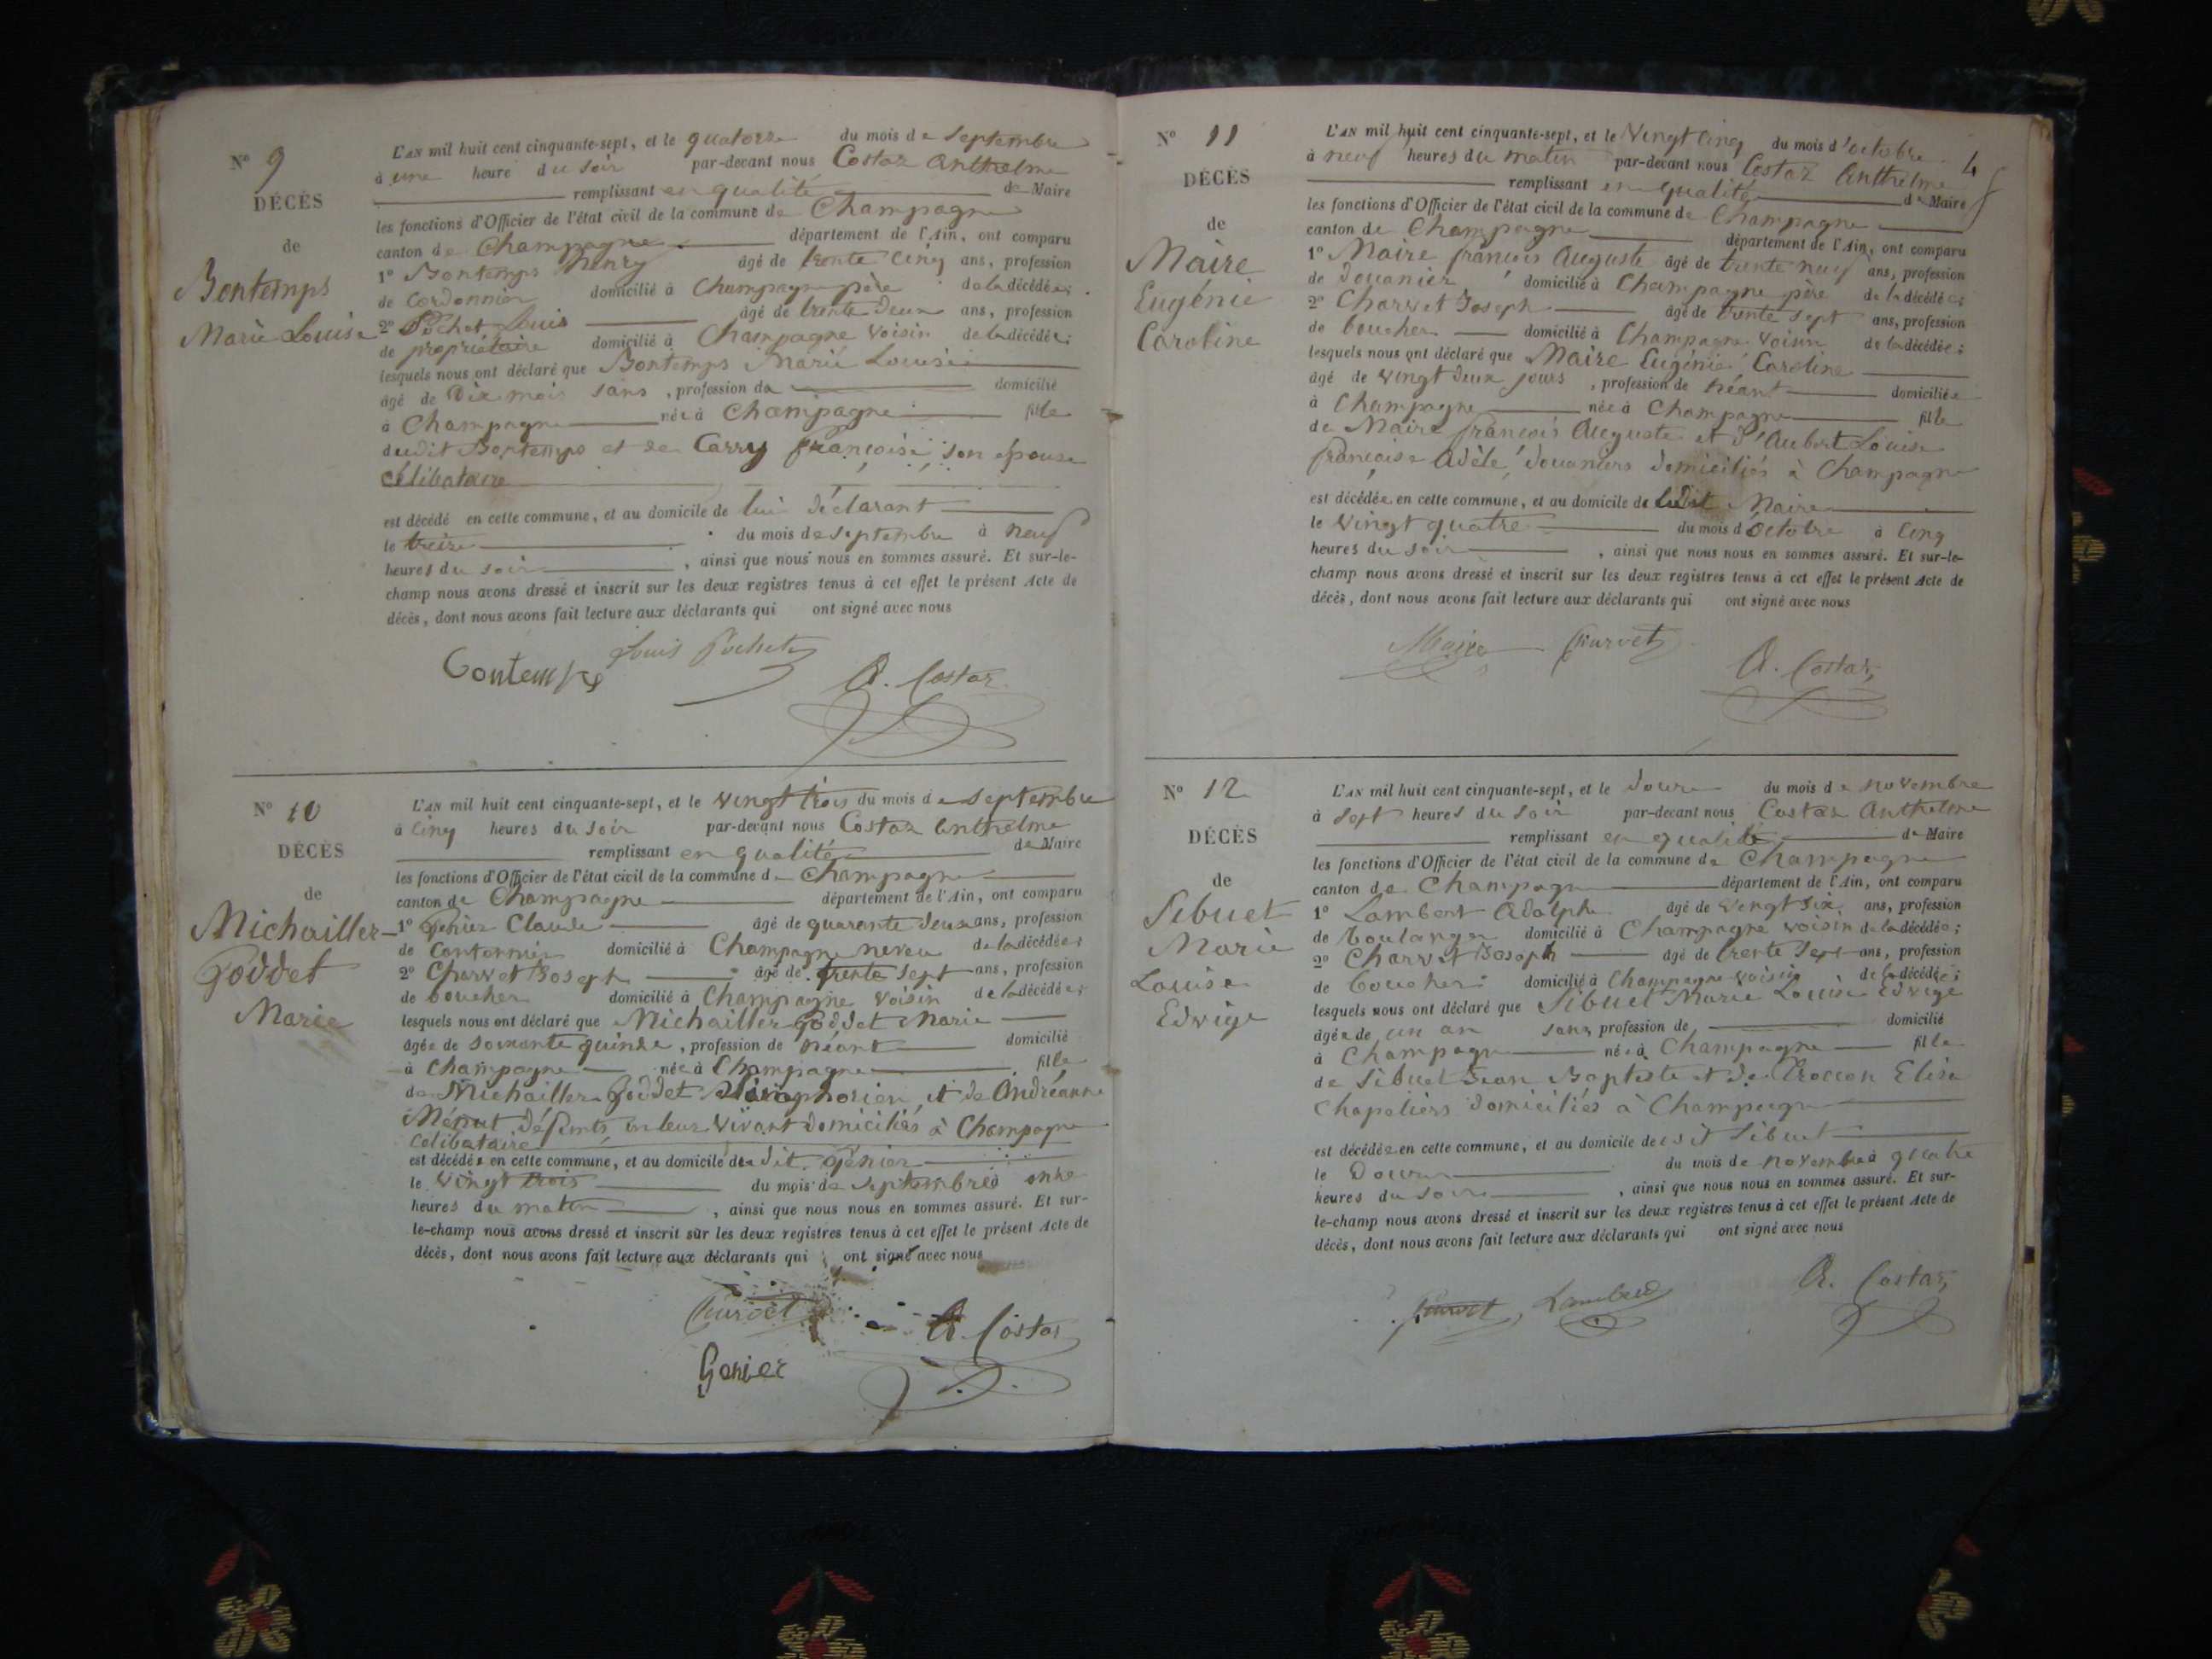 N° 9
DÉCÈS
de
Bontemps
Marie Louise
L'AN mil huit cent cinquante-sept, et le quatorze du mois de Septembre
à une heure du soir par-devant nous Costaz Anthelme
remplissant en qualité de Maire
les fonctions d'Officier de l'état civil de la commune de Champagne
canton de Champagne département de l'Ain, ont comparu
1° Bontemps Henry âgé de trente cinq ans, profession
de Cordonnier domicilié à Champagne père de la décédée;
2° Pochet Louis âgé de trente deux ans, profession
de propriétaire domicilié à Champagne Voisin de la décédée;
lesquels nous ont déclaré que Bontemps Marie Louise
âgé de Dix mois sans, profession de domicilié
à Champagne née à Champagne fille
dudit Bontemps et de Carry françoise son épouse
célibataire
est décédé en cette commune, et au domicile de lui déclarant
le treize du mois de septembre à neuf
heures du soir, ainsi que nous nous en sommes assuré. Et sur-le-
champ nous avons dressé et inscrit sur les deux registres tenus à cet effet le présent Acte de
décès, dont nous avons fait lecture aux déclarants qui ont signé avec nous
Bontemps Louis Pochet A. Costaz
N° 10
DÉCÈS
de
Michailler
Goddet
Marie
L'AN mil huit cent cinquante-sept, et le vingt trois du mois de Septembre
à cinq heures du soir par-devant nous Costaz Anthelme
remplissant en qualité de Maire
les fonctions d'Officier de l'état civil de la commune de Champagne
canton de Champagne département de l'Ain, ont comparu
1° Genier Claude âgé de quarante deux ans, profession
de Cantonnier domicilié à Champagne neveu de la décédée;
2° Charvet Joseph âgé de trente sept ans, profession
de boucher domicilié à Champagne Voisin de la décédée;
lesquels nous ont déclaré que Michailler Goddet Marie
âgée de soixante quinze, profession de néant domicilié
à Champagne née à Champagne fille
de Michailler Goddet et de Andréanne
Défunts en leur Vivant domiciliés à Champagne
Célibataire
est décédée en cette commune, et au domicile du dit Genier
le Vingt trois du mois de Septembre à onze
heures du matin, ainsi que nous nous en sommes assuré. Et sur-
le-champ nous avons dressé et inscrit sur les deux registres tenus à cet effet le présent Acte de
décès, dont nous avons fait lecture aux déclarants qui ont signé avec nous
Charvet A. Costaz
Genier
4
N° 11
DÉCÈS
de
Maire
Eugénie
Caroline
L'AN mil huit cent cinquante-sept, et le Vingt cinq du mois d'octobre
à neuf heures du matin par-devant nous Costaz Anthelme
remplissant en qualité de Maire
les fonctions d'Officier de l'état civil de la commune de Champagne
canton de Champagne département de l'Ain, ont comparu
1° Maire françois Auguste âgé de trente neuf ans, profession
de douanier domicilié à Champagne père de la décédée;
2° Charvet Joseph âgé de trente sept ans, profession
de boucher domicilié à Champagne Voisin de la décédée;
lesquels nous ont déclaré que Maire Eugénie Caroline
âgé de vingt deux jours, profession de néant domiciliée
à Champagne née à Champagne fille
de Maire françois Auguste et d'Aubert Louise
françoise Adèle, douaniers domiciliés à Champagne
est décédée en cette commune, et au domicile de Maire
le vingt quatre du mois d'octobre à cinq
heures du soir, ainsi que nous nous en sommes assuré. Et sur-le-
champ nous avons dressé et inscrit sur les deux registres tenus à cet effet le présent Acte de
décès, dont nous avons fait lecture aux déclarants qui ont signé avec nous
Maire Charvet A. Costaz
N° 12
DÉCÈS
de
Sibuet
Marie
Louise
Edwige
L'AN mil huit cent cinquante-sept, et le douze du mois de novembre
à sept heures du soir par-devant nous Costaz Anthelme
remplissant en qualité de Maire
les fonctions d'Officier de l'état civil de la commune de Champagne
canton de Champagne département de l'Ain, ont comparu
1° Lambert Adolphe âgé de vingt six ans, profession
de boulanger domicilié à Champagne voisin de la décédée;
2° Charvet Joseph âgé de trente sept ans, profession
de boucher domicilié à Champagne voisin de la décédée;
lesquels nous ont déclaré que Sibuet Marie Louise Edwige
âgée de un an sans profession de domicilié
à Champagne née à Champagne fille
de Sibuet Jean Baptiste et de Elisa
Chapeliers domiciliés à Champagne
est décédée en cette commune, et au domicile de Sibuet
le Douze du mois de novembre à quatre
heures du soir, ainsi que nous nous en sommes assuré. Et sur-
le-champ nous avons dressé et inscrit sur les deux registres tenus à cet effet le présent Acte de
décès, dont nous avons fait lecture aux déclarants qui ont signé avec nous
Charvet Lambert A. Costaz